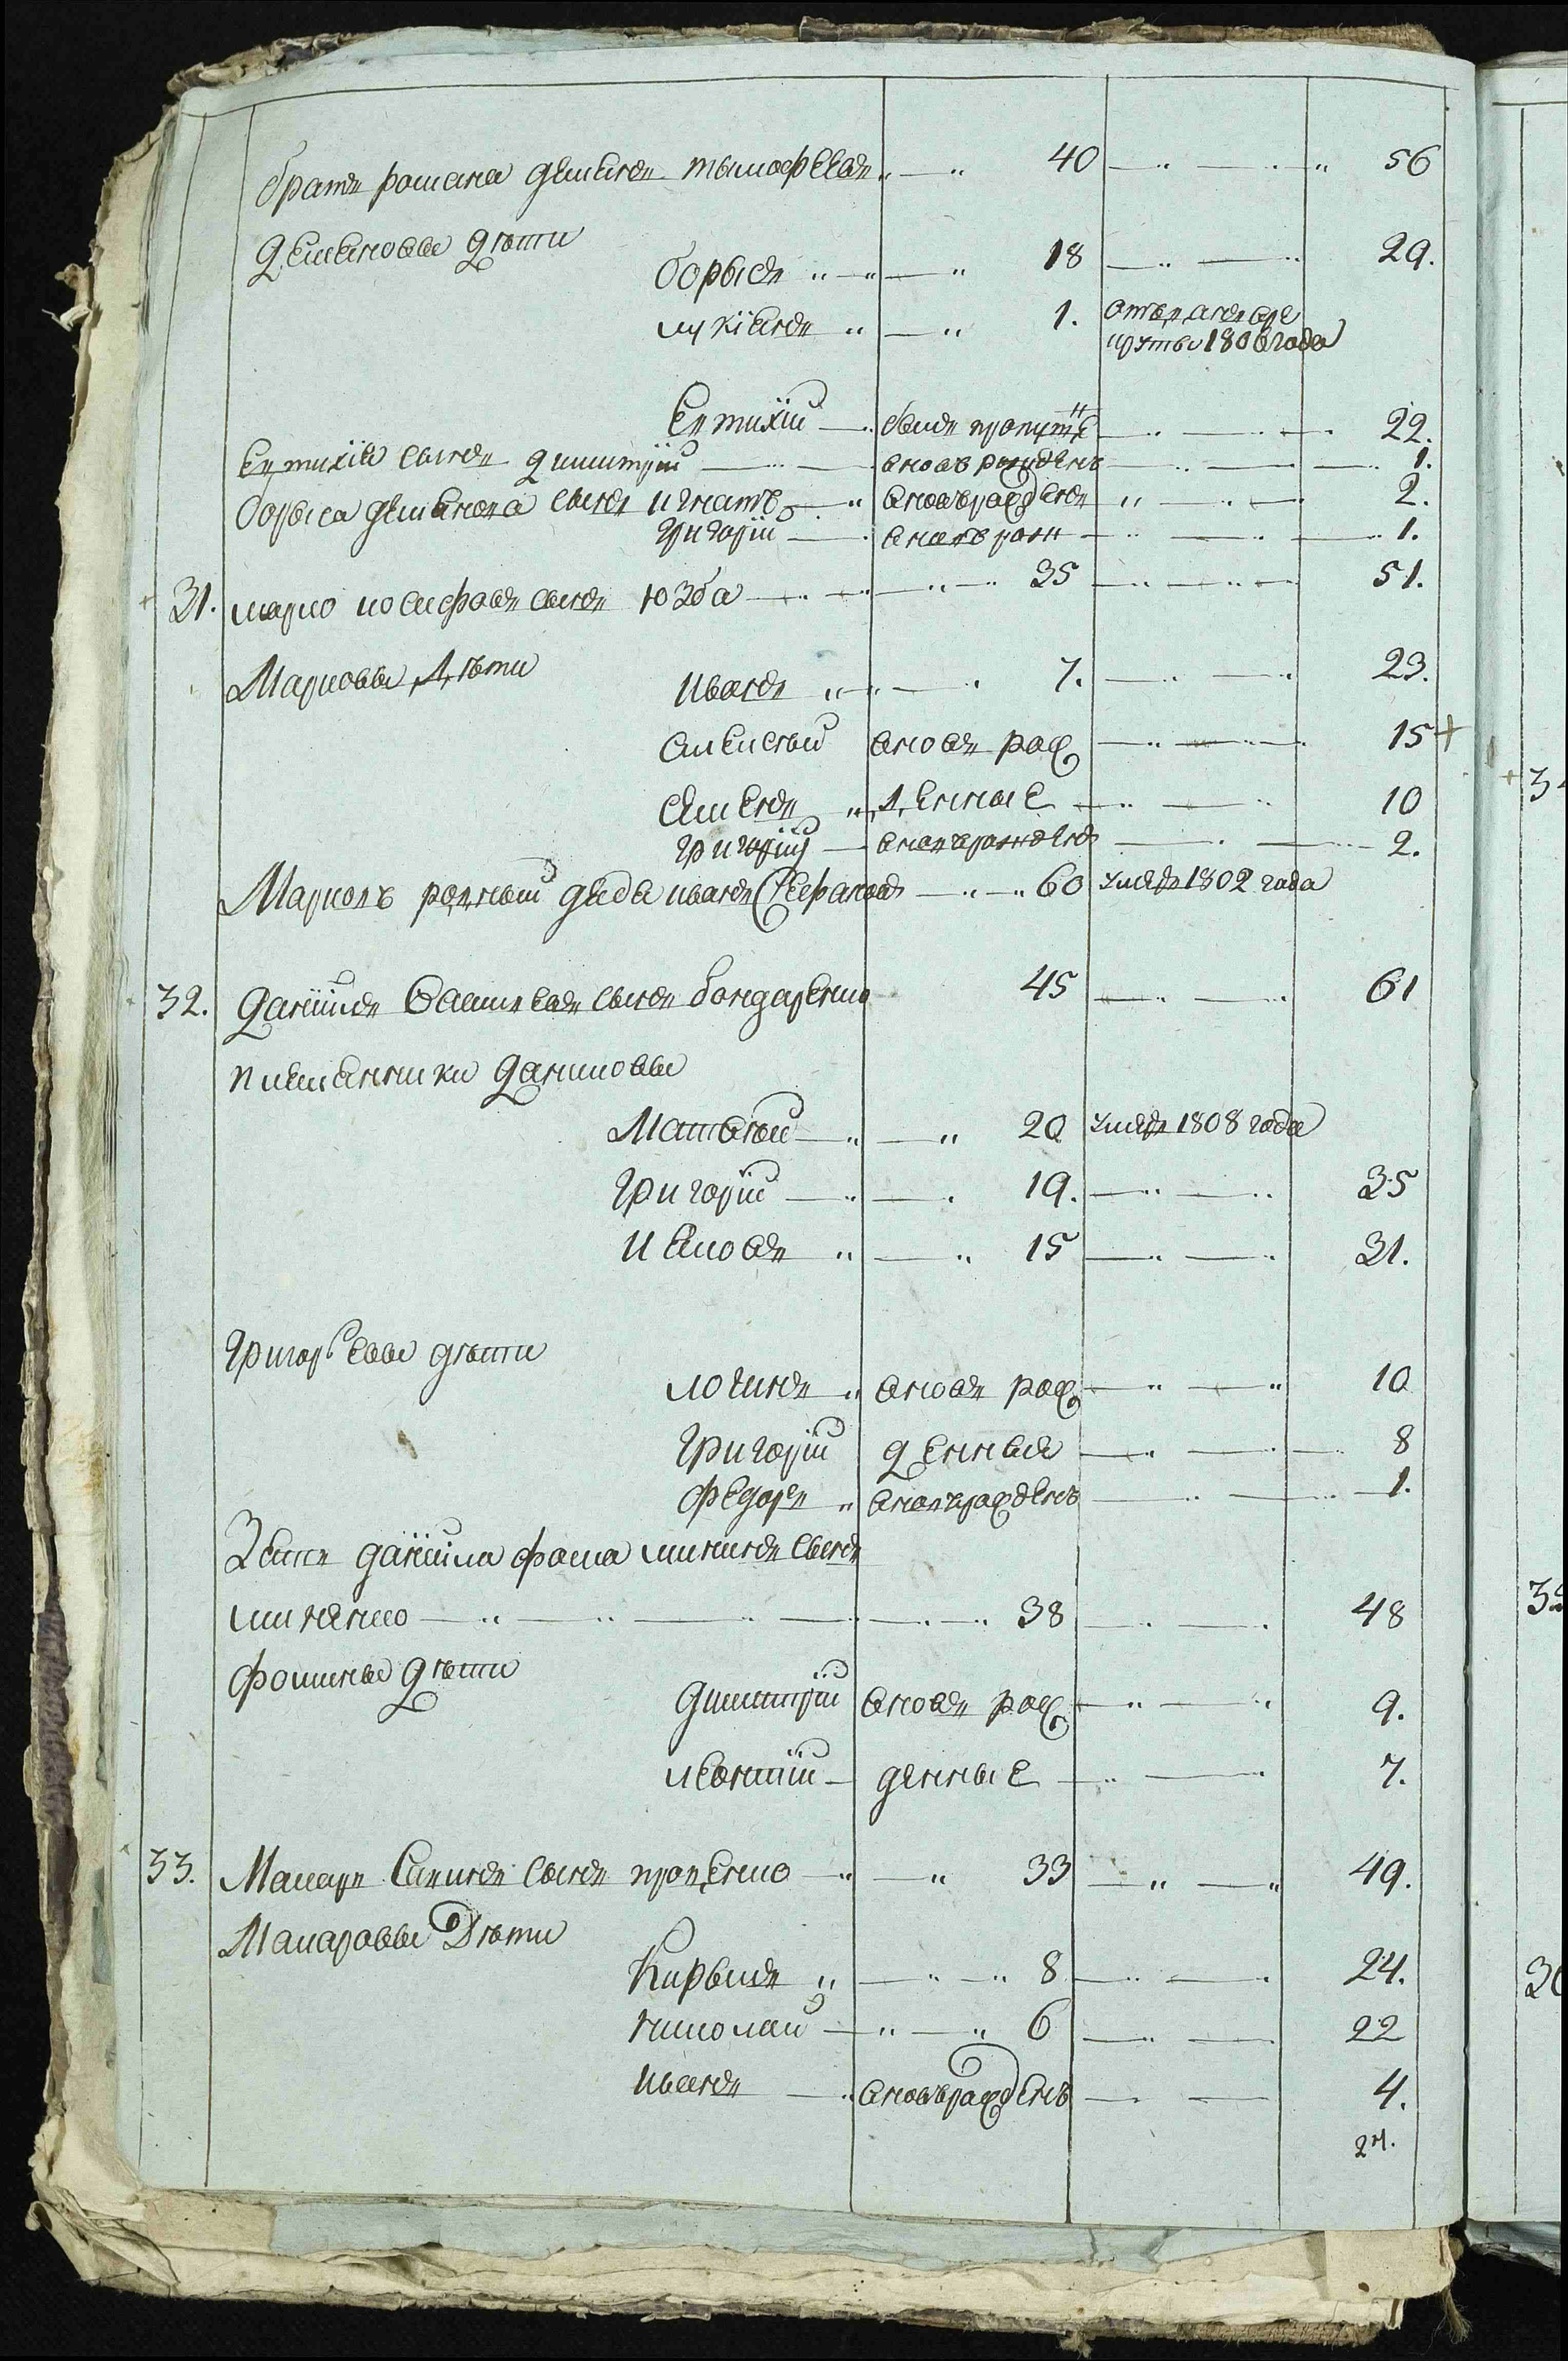 братъ романа демьянъ тымофѣевъ 40 56
демьяновы дѣти
борысъ 18 29.
лукіянъ 1. отъданъ въ
рекруты 1806 года
Евтихій былъ пропущенъ 22.
Евтихія сынъ димитрій вновь рожденъ 1.
борыса демьянова сынъ игнатъ вновьрожденъ 2.
григорій вновь рожн 1.
31. марко иосифовъ сынъ юзба 35 51.
Марковы дѣти
иванъ 7. 23.
алексѣй вновь рож 15
семенъ денные 10
григорій вновьрожденъ 2.
Марковъ родный дядя иванъ Стефановъ 60 умеръ 1802 года
32. даніилъ Василевъ сынъ бондаренко 45 61
племянники даниловы
Матвѣй 20 умеръ 1808 года
григорій 19. 35
Яковъ 15 31.
григорьевы дѣти
логинъ вновь рож 10
григорій денные 8
федоръ вновьрожденъ 1.
Зять даніила фома мининъ сынъ
миненко 38 48
фомины дѣти
димитрій вновь рож 9.
леонтій денные 7.
33. Макаръ Савинъ сынъ проценко 33 49.
Макаровы дѣти
Кирылъ 8 24.
николай 6 22
иванъ вновьрожденъ 4.
24.